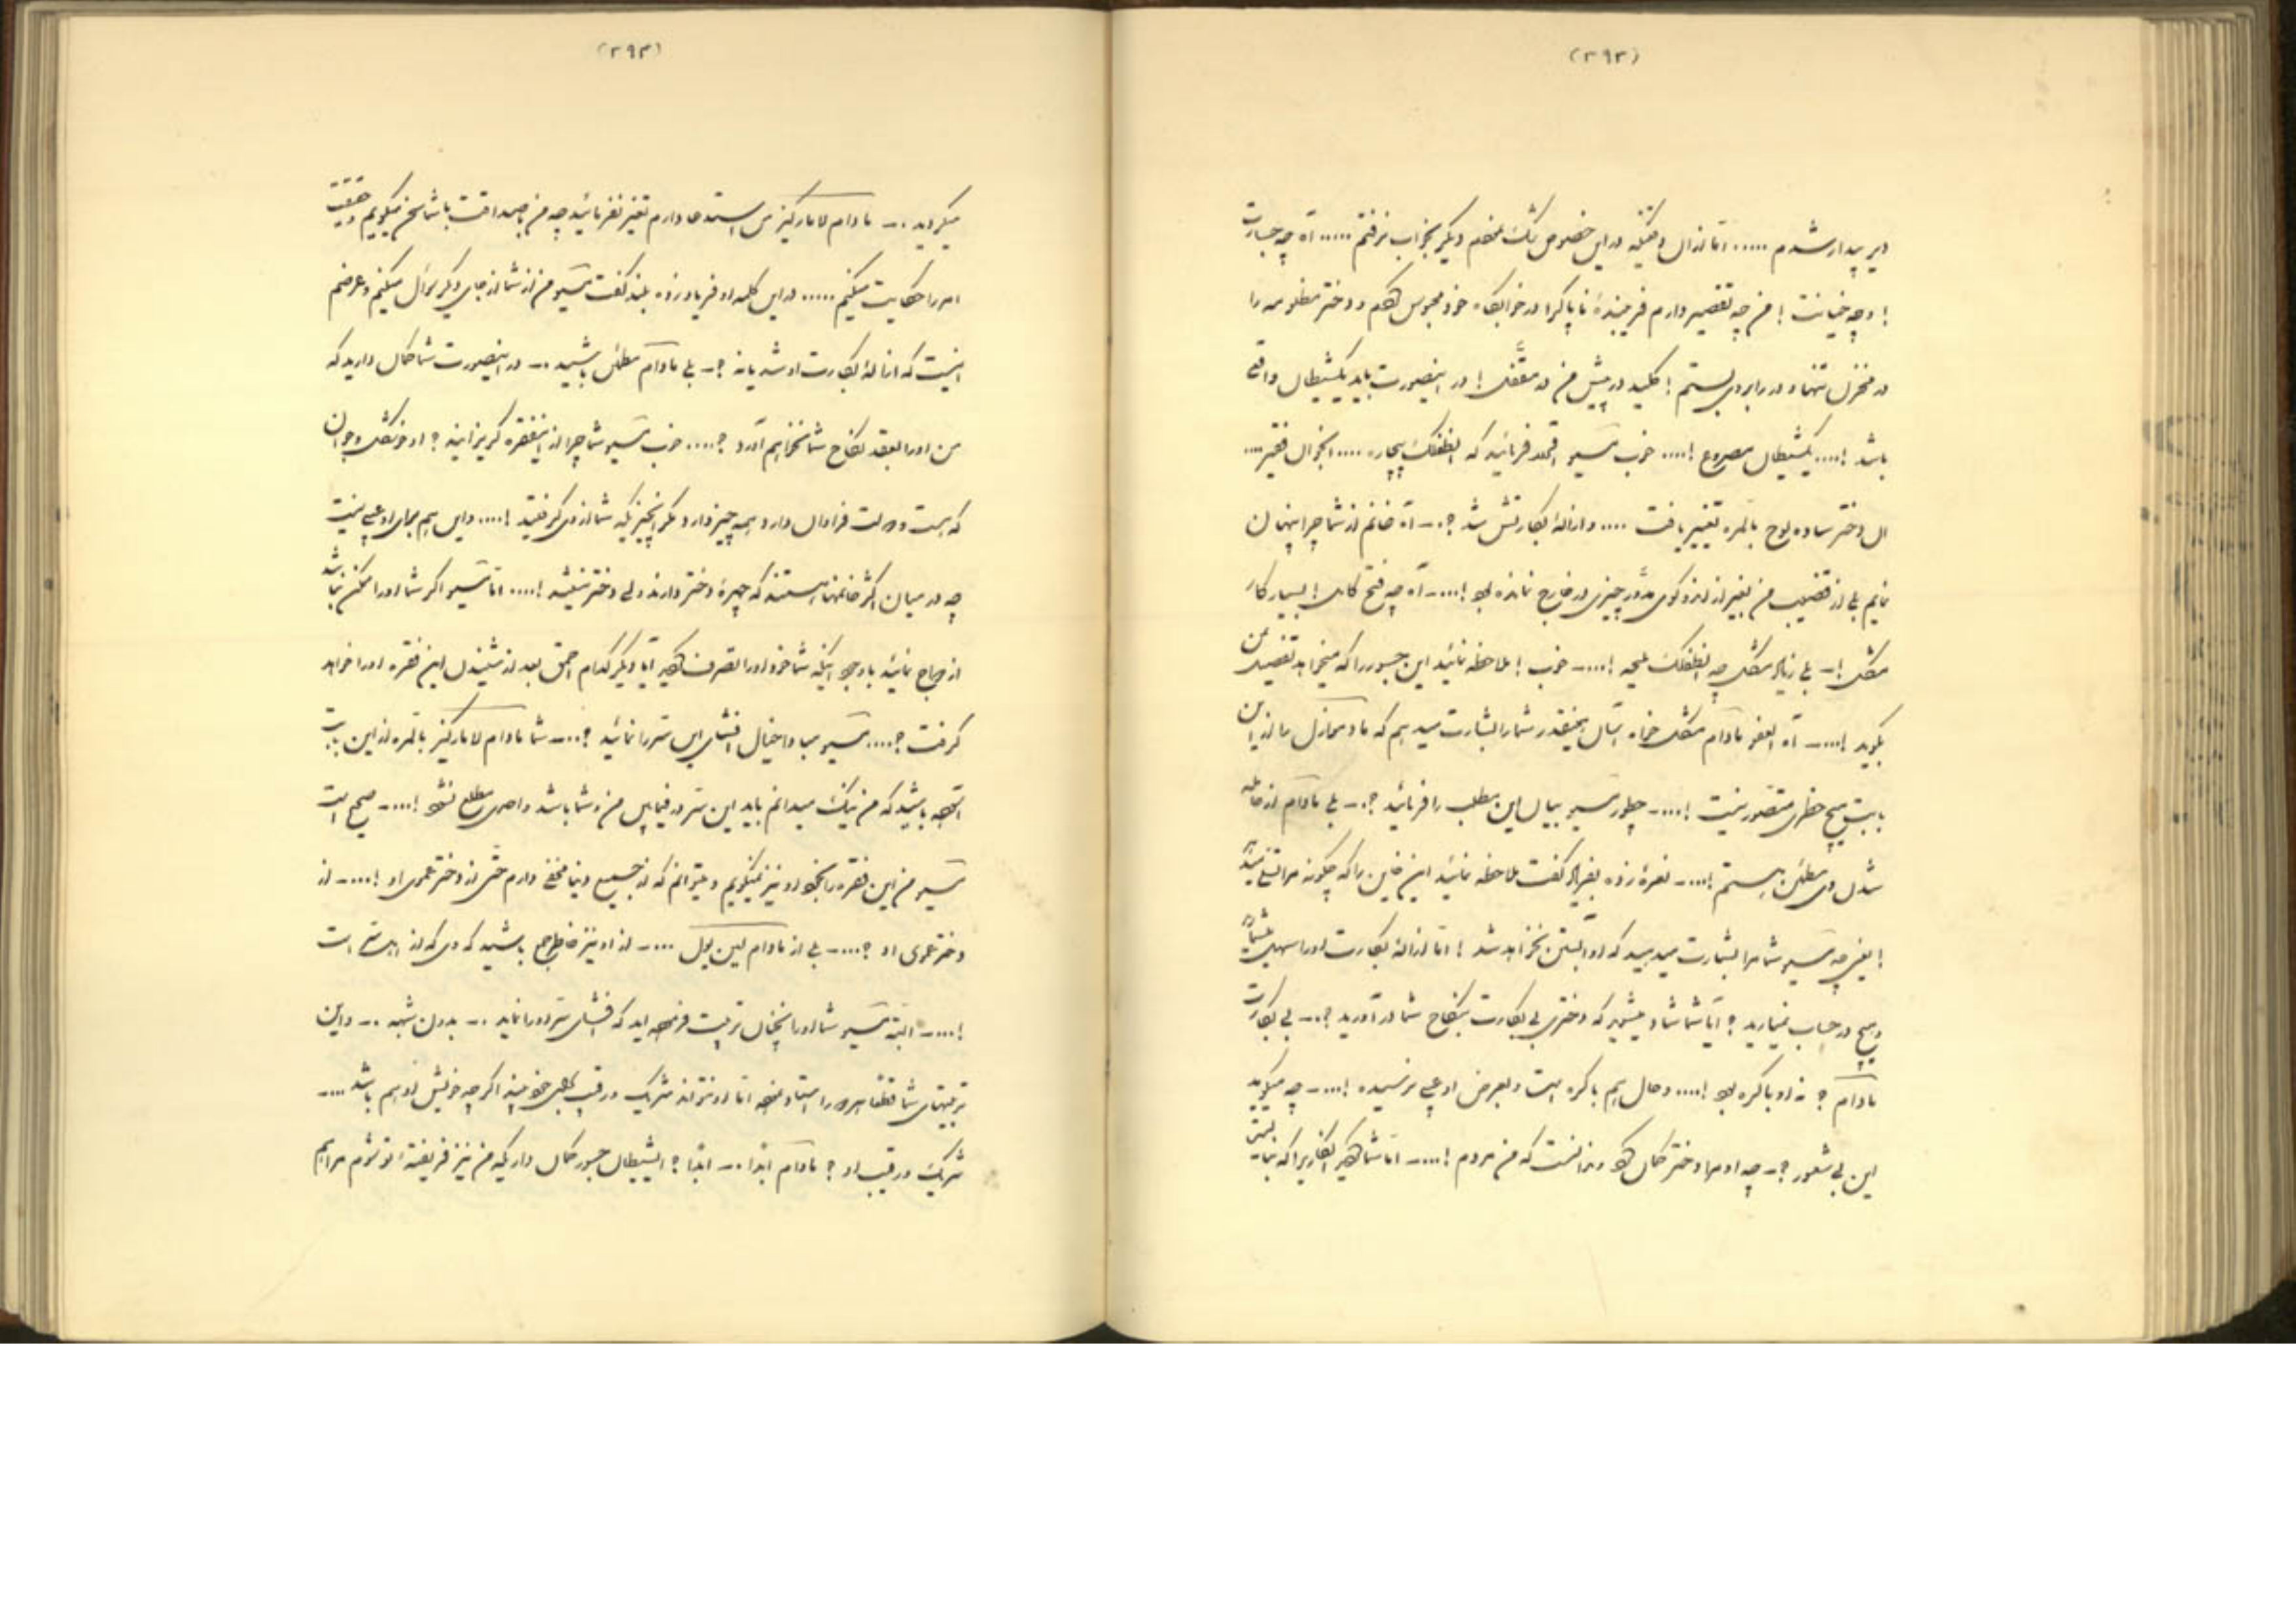 (۳۹۳)
دیر بیدار شدم ..... اما از آن دقیقه در این خصوص دیگر بخواب نرفتم ..... آه چه جسارت
! و چه خیانت ! من چه تقصیر دارم فریبنده ناپاک را در خوابگاه خود محبوس و دختر مظلومه را
در منزل تنها و در را بروی بستم ! کلید در پیش من در مقفل ! در اینصورت باید یکشیطان واقعی
باشد !.... یکشیطان مصروع !.... خوب مسیو قصه فرمائید که الطفلک بیچاره .... انجوان فقیر ....
ان دختر ساده لوح بالمره تغییر یافت .... و ازاله بکارتش شد ؟.. آه خانم از شما چرا پنهان
نمایم بلی از قضیب من بغیر از دو گوی مدور چیزی در خارج نمانده بود !.... آه چه فتح کامل ! بسیار کار
مشکل !- بلی زیاد مشکل چه الطفلک ملیحه !.... خوب ! ملاحظه نمائید این جسور را که میخواهد تقصیر من
بگوید !.... آه العفو مادام مشکل خواه آسان اینقدر شما را بشارت میدهم که مادموازل ما از این
بابت هیچ خطری متصور نیست !.... چطور مسیو بیان این مطلب را فرمائید ؟.. بلی مادام از حامله
شدن وی مطمئن هستم !.... نعره زده بفریاد گفت ملاحظه نمائید این خاین را که چگونه مرا تسلی میدهد
! یعنی چه مسیو شما مرا بشارت میدهید که او آبستن نخواهد شد ! اما ازاله بکارت او را سهل
و هیچ در حساب نمیارید ؟ آیا شما شاد میشوید که دختری بی بکارت بنکاح شما در آورید ؟.. بی بکارت
مادام ؟ نه او باکره بود !.... و حال هم باکره است و بعرض او عیبی نرسیده !.... چه میگوید
این بی شعور ؟- چه او مرا دختر گمان کرد و ندانست که من مردم !.... اما شما انکاریرا که
(۳۹۴)
میکردید .. مادام لامارکیز من استدعا دارم تغیر نفرمائید چه من بصداقت با شما سخن میگویم و حقیقت
امر را حکایت میکنم ..... در این کلمه او فریاد زده بلند گفت مسیو من از شما از جای دیگر سوال میکنم و غرضم
اینست که ازاله بکارت او شد یا نه ؟- بلی مادام مطمئن باشید .. در اینصورت شما گمان دارید که
من او را بعقد نکاح شما نخواهم آورد ؟.... خوب مسیو شما چرا از اینفقره گریزانید ؟ او خوشگل و جوان
که هست و دولت فراوان دارد همه چیز دارد مگر انچیزیکه شما از وی گرفتید !.... و این هم برای او عیبی نیست
چه در میان اکثر خانمها هستند که چهره دختر دارند ولی دختر نیستند !.... اما مسیو اگر شما او را ممکن نباشد
ازدواج نمائید با وجود اینکه شما خود او را تصرف آیا دیگر کدام احمق بعد از شنیدن این فقره او را خواهد
گرفت ؟.... مسیو مبادا خیال افشای این سر را نمائید ؟... شما مادام لامارکیز بالمره از این بابت
آسوده باشید که من نیک میدانم باید این سر در فیمابین من و شما باشد و احدی مطلع نشود !.... صحیح است
مسیو من این فقره را بخود او نیز نمیگویم و میتوانم که از جمیع دنیا مخفی دارم حتی از دختر عموی او !.... از
دختر عموی او ؟.... بلی از مادام لین یول .... از او نیز خاطر جمع باشید که
!.... البته مسیو شما او را بچنان تربیت فرموده اید که افشای سر او را نماید .. بدون شبهه .. و این
تربیتهای شما اما او نتواند شریک و رقیب اگر چه خویش او هم باشد ....
شریک و رقیب او ؟ مادام ابدا .. ابدا ؟ الشیطان جسور گمان دارد که من نیز فریفته او شوم مرا هم